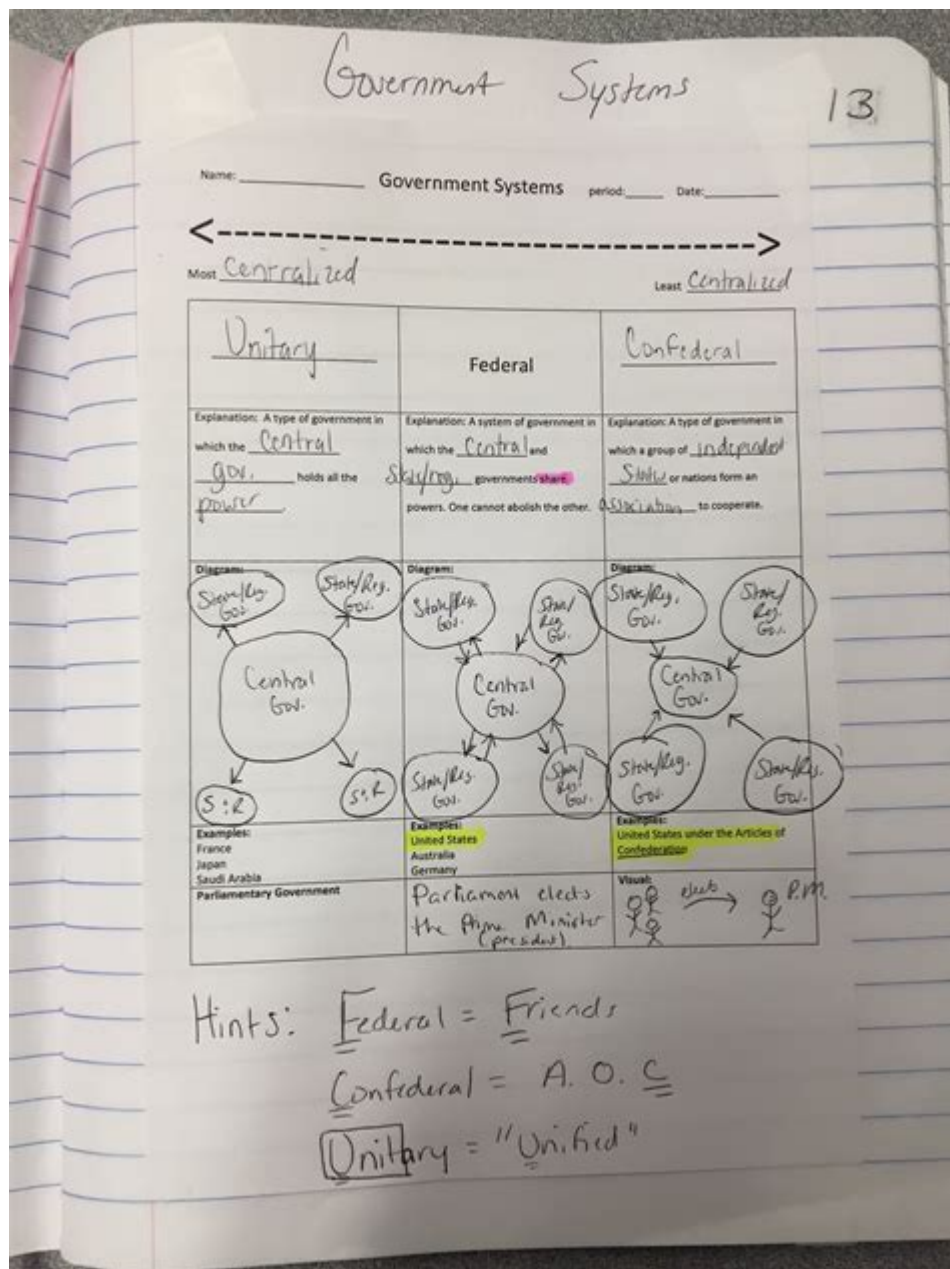 Government Systems
13
Name: Government Systems period: Date:
Most Centralized
Least Centralized
Unitary
Federal
Confederal
Explanation: A type of government in
which the Central
gov. holds all the
power.
Explanation: A system of government in
which the Central and
State/reg. governments share
powers. One cannot abolish the other.
Explanation: A type of government in
which a group of independent
State or nations form an
association to cooperate.
Diagram:
State/Reg.
Gov.
State/Reg.
Gov.
Central
Gov.
S & R
S & R
Diagram:
State/Reg.
Gov.
State/
Reg.
Gov.
Central
Gov.
State/Reg.
Gov.
State/
Reg.
Gov.
Diagram:
State/Reg.
Gov.
State/
Reg.
Gov.
Central
Gov.
State/Reg.
Gov.
State/Reg.
Gov.
Examples:
France
Japan
Saudi Arabia
Examples:
United States
Australia
Germany
Examples:
United States under the Articles of
Confederation
Parliamentary Government
Parliament elects
the Prime Minister
(president)
Visual:
elects
P.M.
Hints: Federal = Friends
Confederal = A. O. C
Unitary = "Unified"